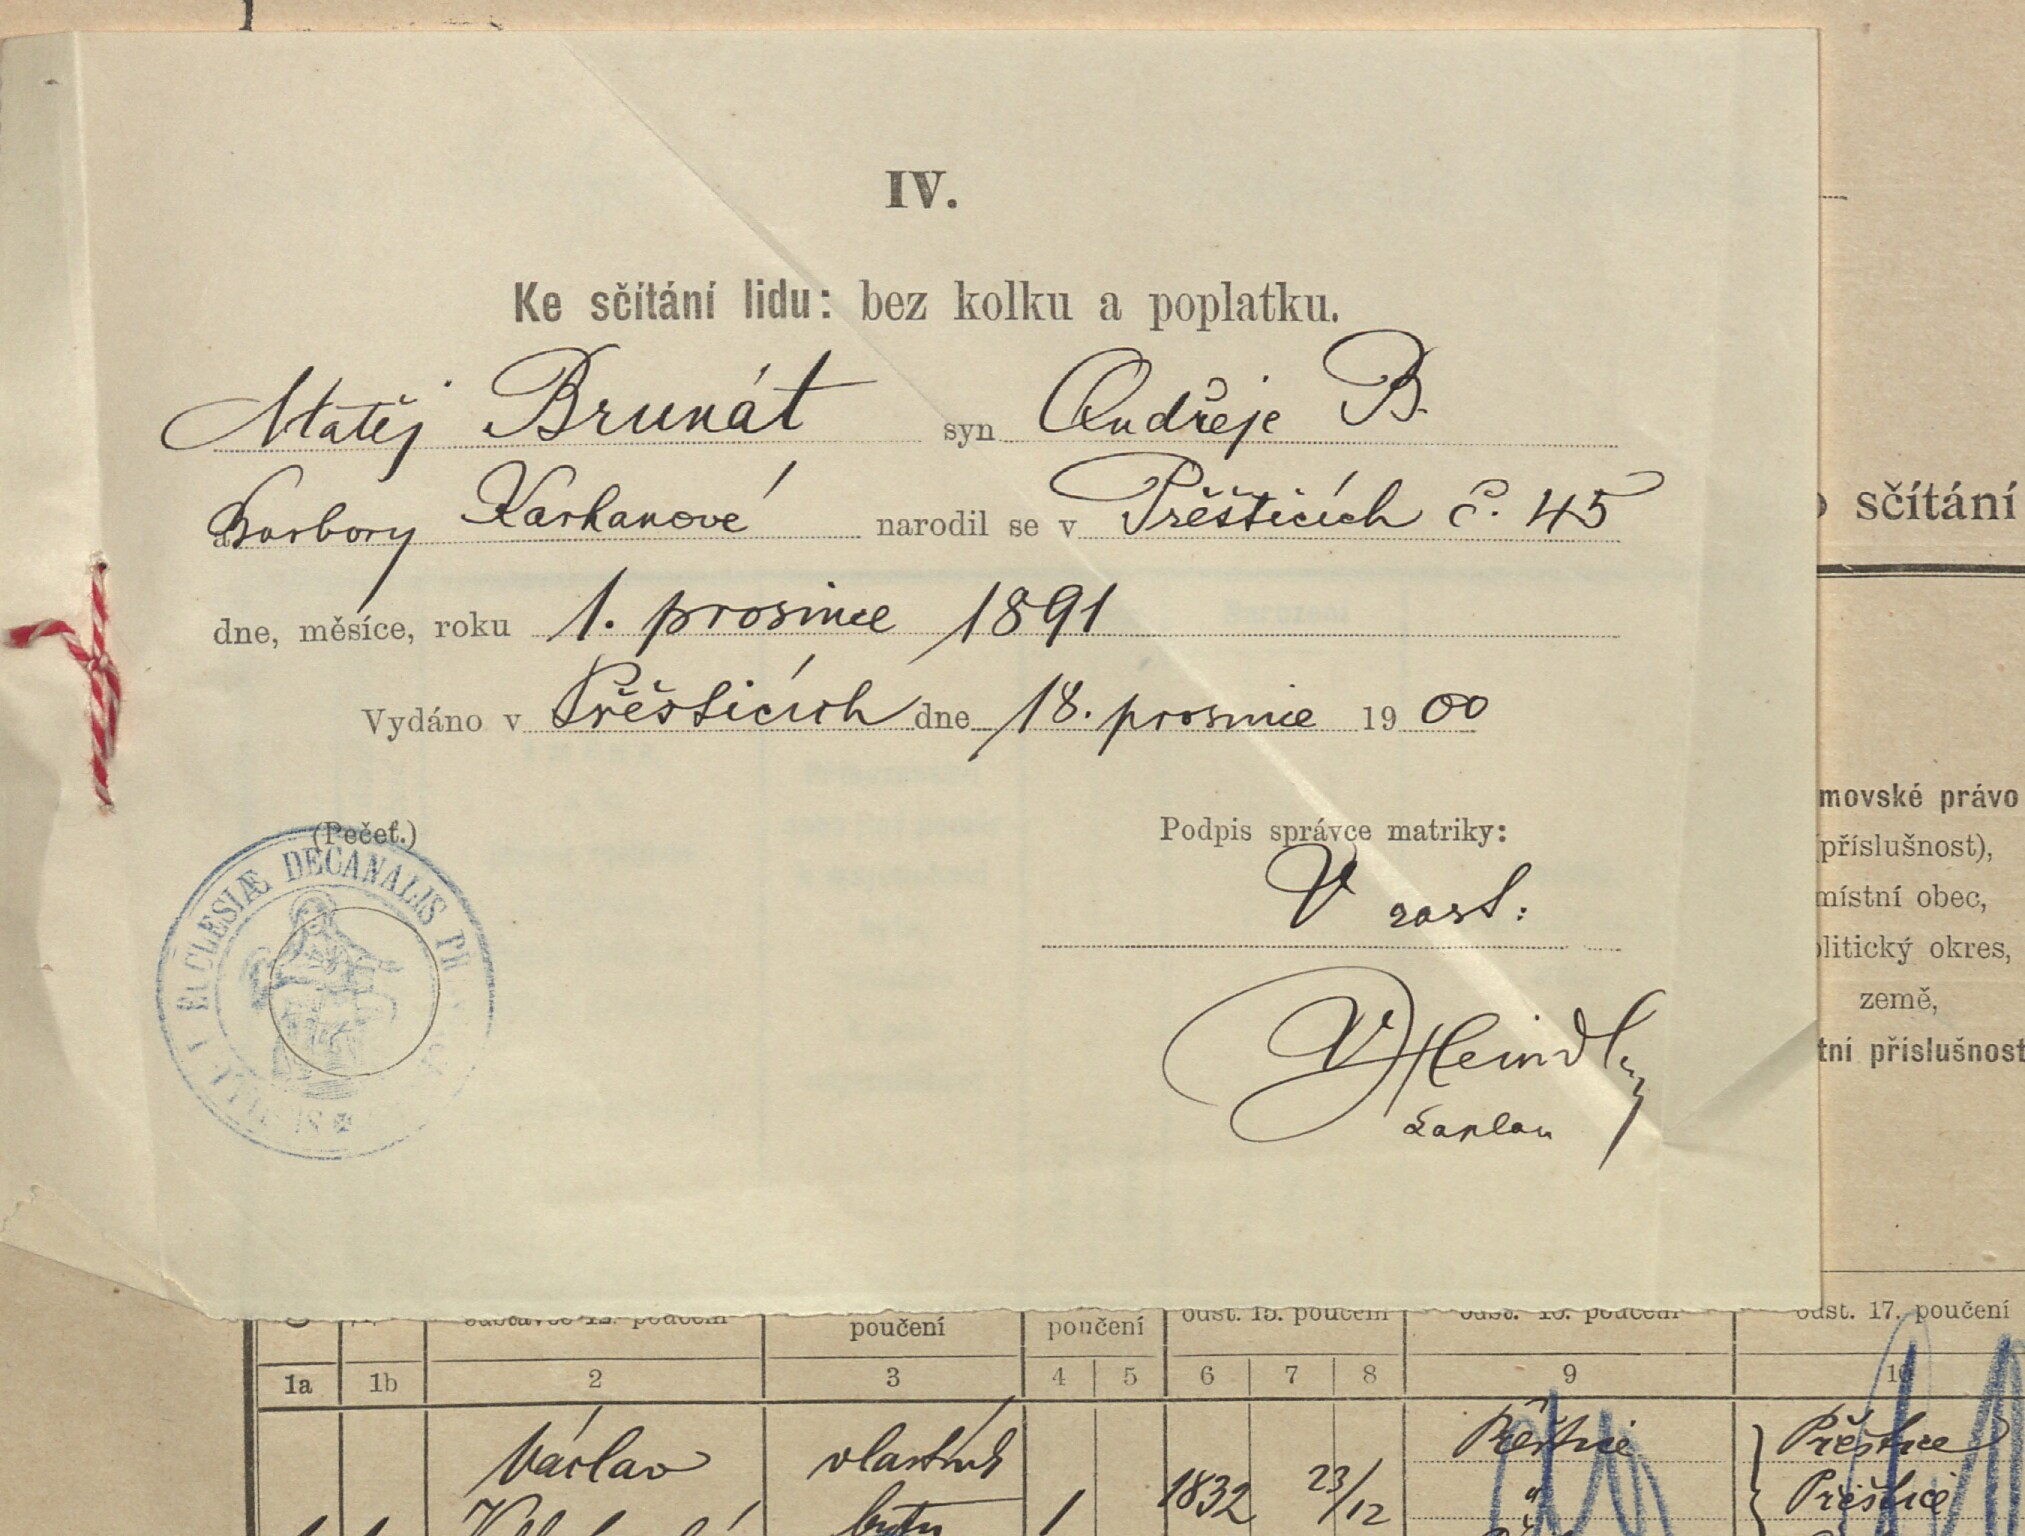 IV.
Ke sčítání lidu: bez kolku a poplatku.
Matěj Brunát syn Ondřeje B.
a Barbory Karhanové narodil se v Přěšticích č. 45
dne, měsíce, roku 1. prosince 1891
Vydáno v Přěšticích dne 18. prosince 1900
(Pečeť.)
ECCLESIÆ DECANALIS
Podpis správce matriky:
V zast:
V Heindl
kaplan
sčítání
movské právo
(příslušnost),
místní obec,
olitický okres,
země,
tní příslušnost
poučení
poučení
odst. 15. poučení
odst. 17. poučení
1a 1b 2 3 4 5 6 7 8 9 10
Václav vlastník Přěštice Přěštice
bytu 1 1832 23/12 " Přěštice